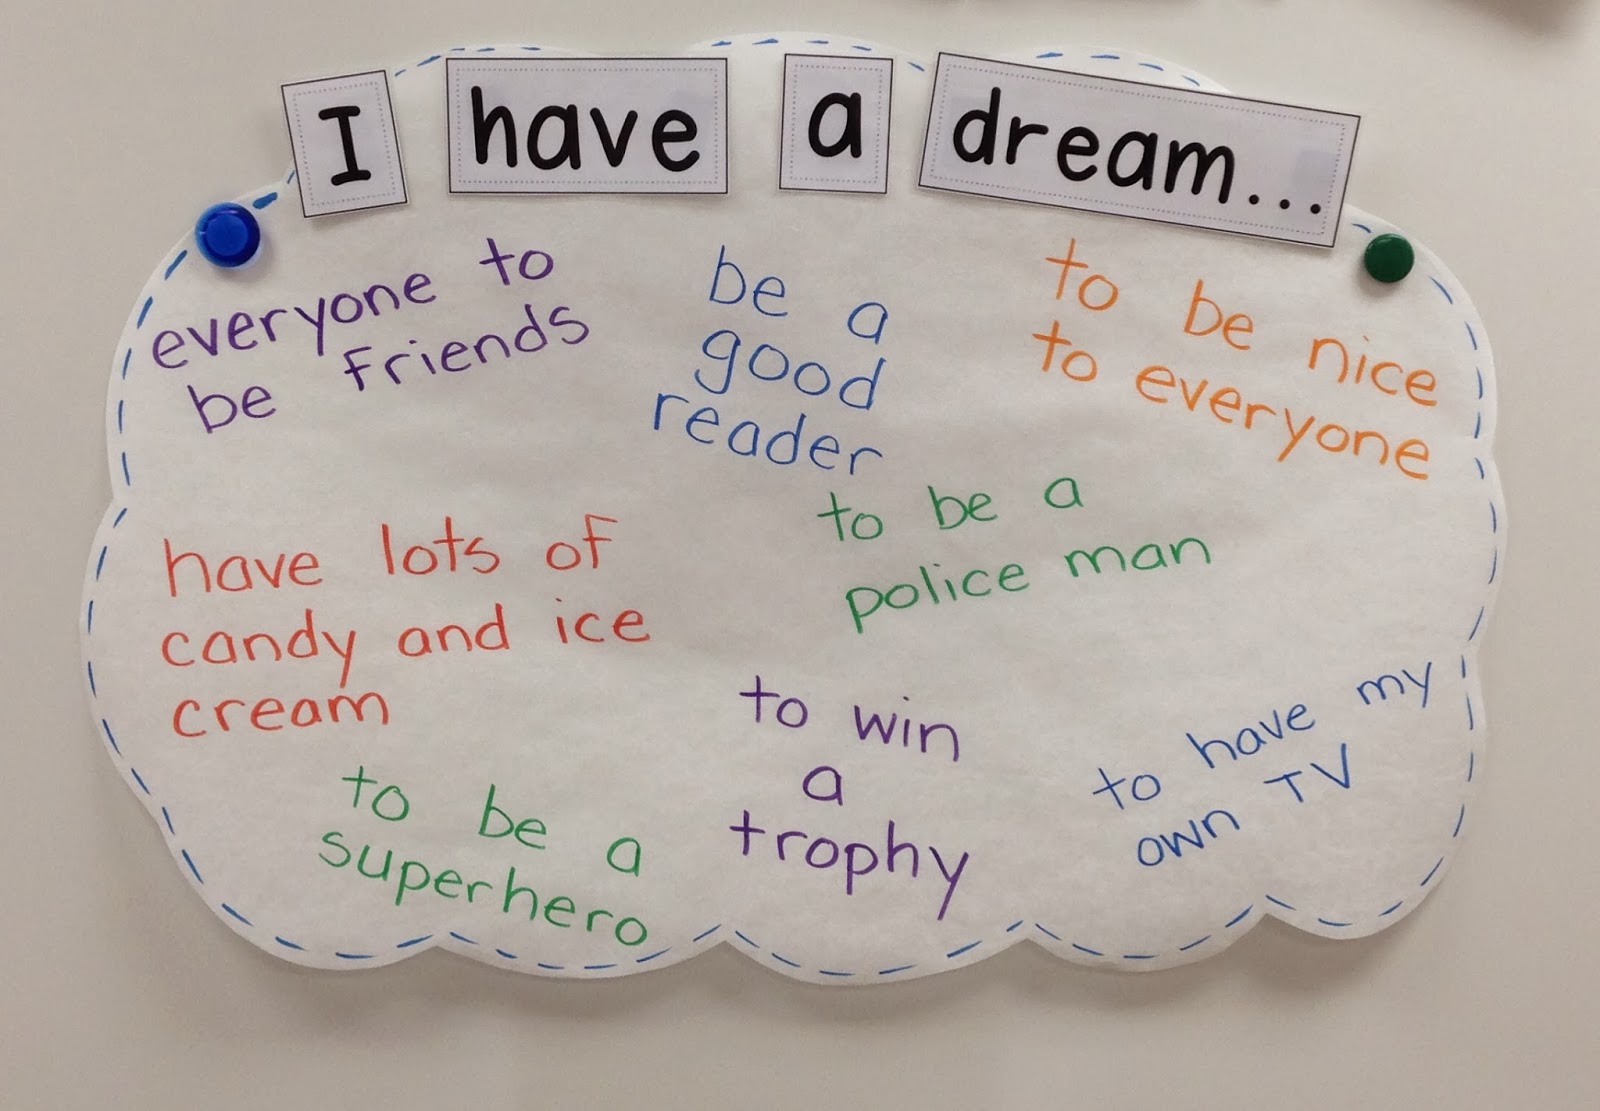 I have a dream...
everyone to
be friends
be a
good
reader
to be nice
to everyone
have lots of
candy and ice
cream
to be a
police man
to be a
superhero
to win
a
trophy
to have my
own TV